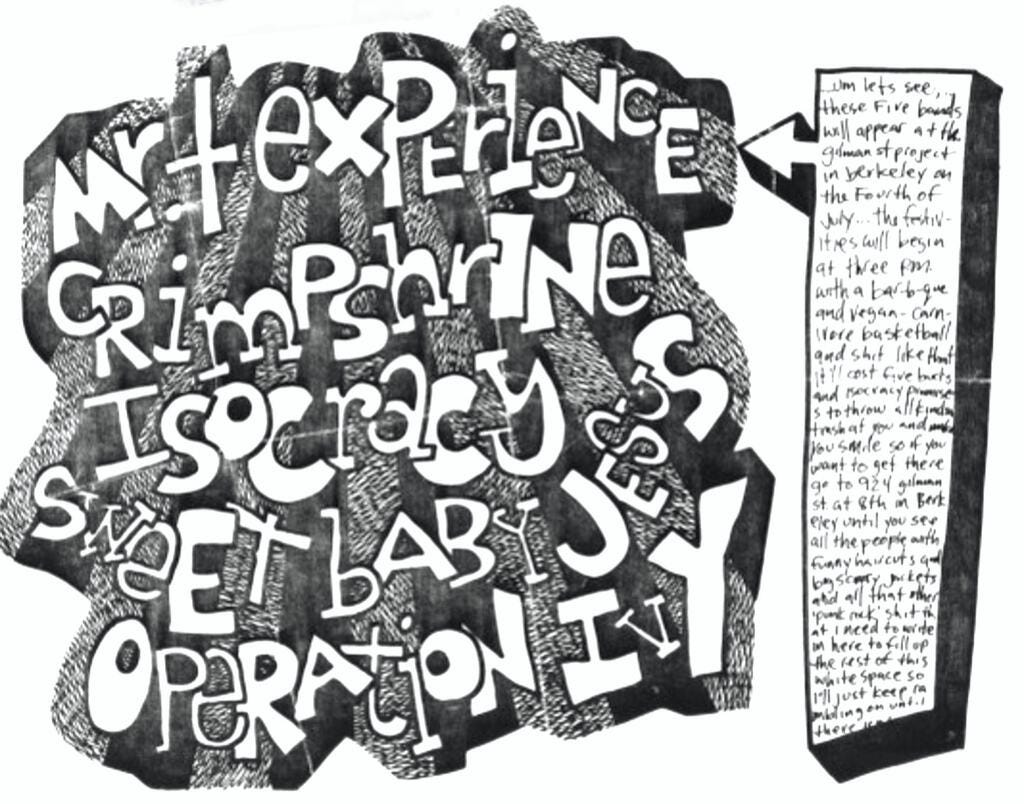 Mr. t experience
Crimpshrine
Isocracy
Sweet baby Jesus
Operation Ivy
...um lets see,...
these Five bands
will appear at the
gilman st project
in berkeley on
the Fourth of
July... the festiv-
ities will begin
at three P.M.
with a bar-b-que
and vegan-carn-
ivore basketball
and shit like that
it'll cost five bucks
and isocracy promise
s to throw all kinda
trash at you and make
you smile so if you
want to get there
go to 924 gilman
st. at 8th in Berk
eley until you see
all the people with
funny haircuts and
big scary jackets
and all that other
'punk rock' shit th
at i need to write
in here to fill up
the rest of this
white space so
i'll just keep ra
mbling on until
there